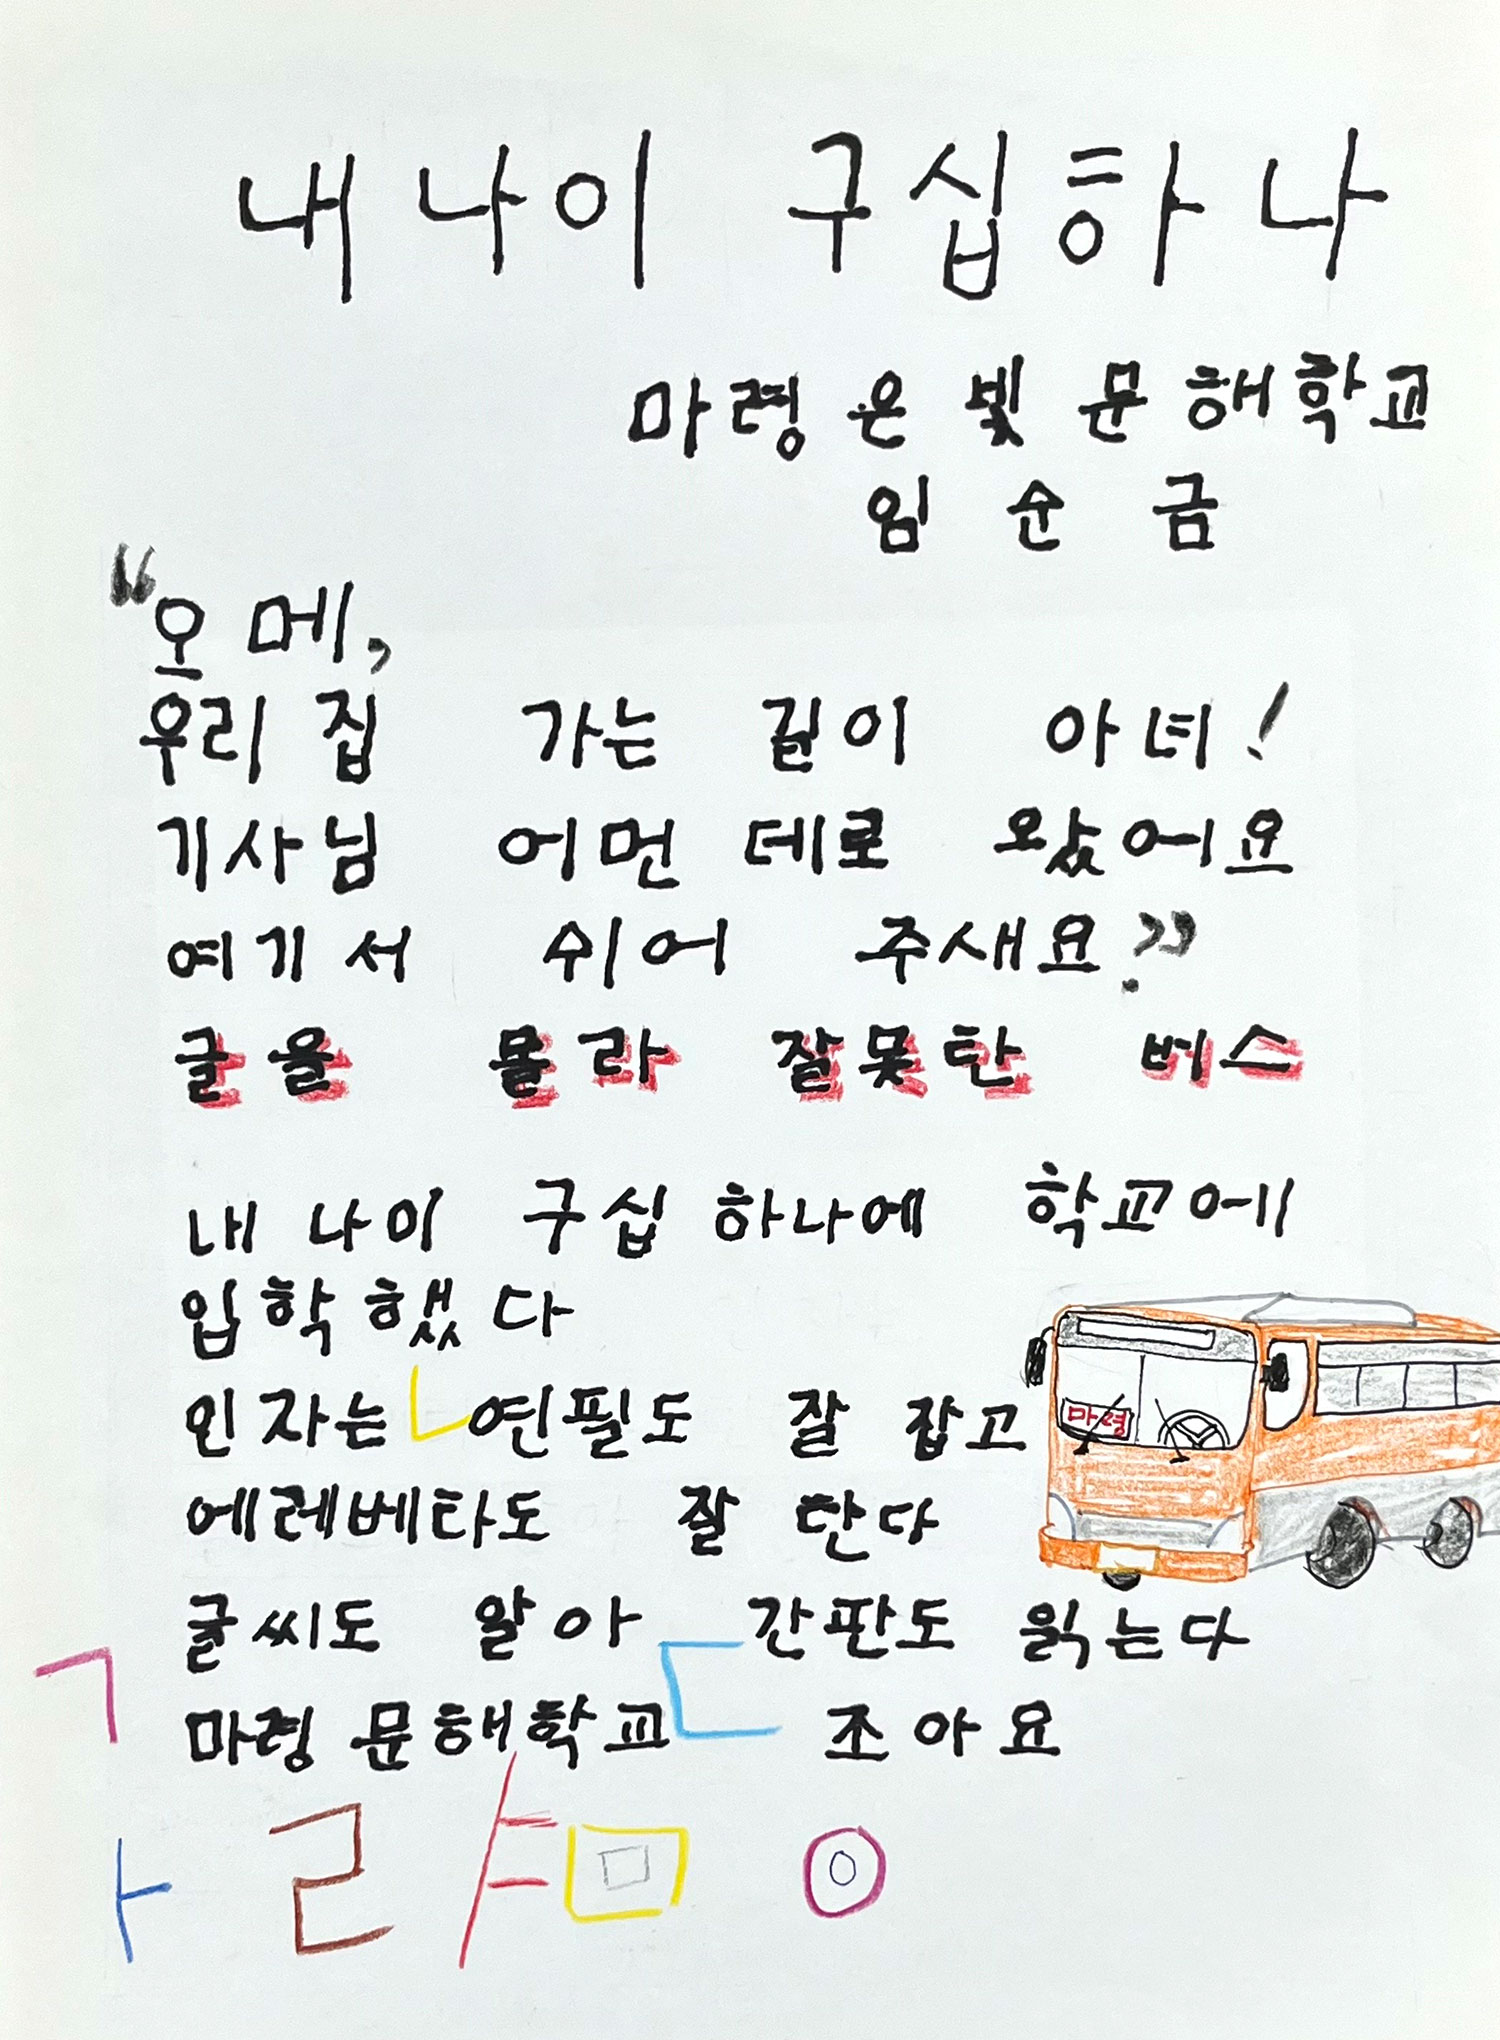 내 나이 구십하나
마령 은빛 문해학교
임순금
“오메,
우리 집 가는 길이 아녀!
기사님 어먼 데로 왔어요
여기서 쉬어 주새요?”
글을 몰라 잘못탄 버스
내 나이 구십 하나에 학교에
입학했다
인자는 연필도 잘 잡고
에레베타도 잘 탄다
글씨도 알아 간판도 읽는다
마령 문해학교 조아요
마령
ㄱ ㄴ ㄷ
ㅏ ㄹ ㅑ ㅁ ㅇ